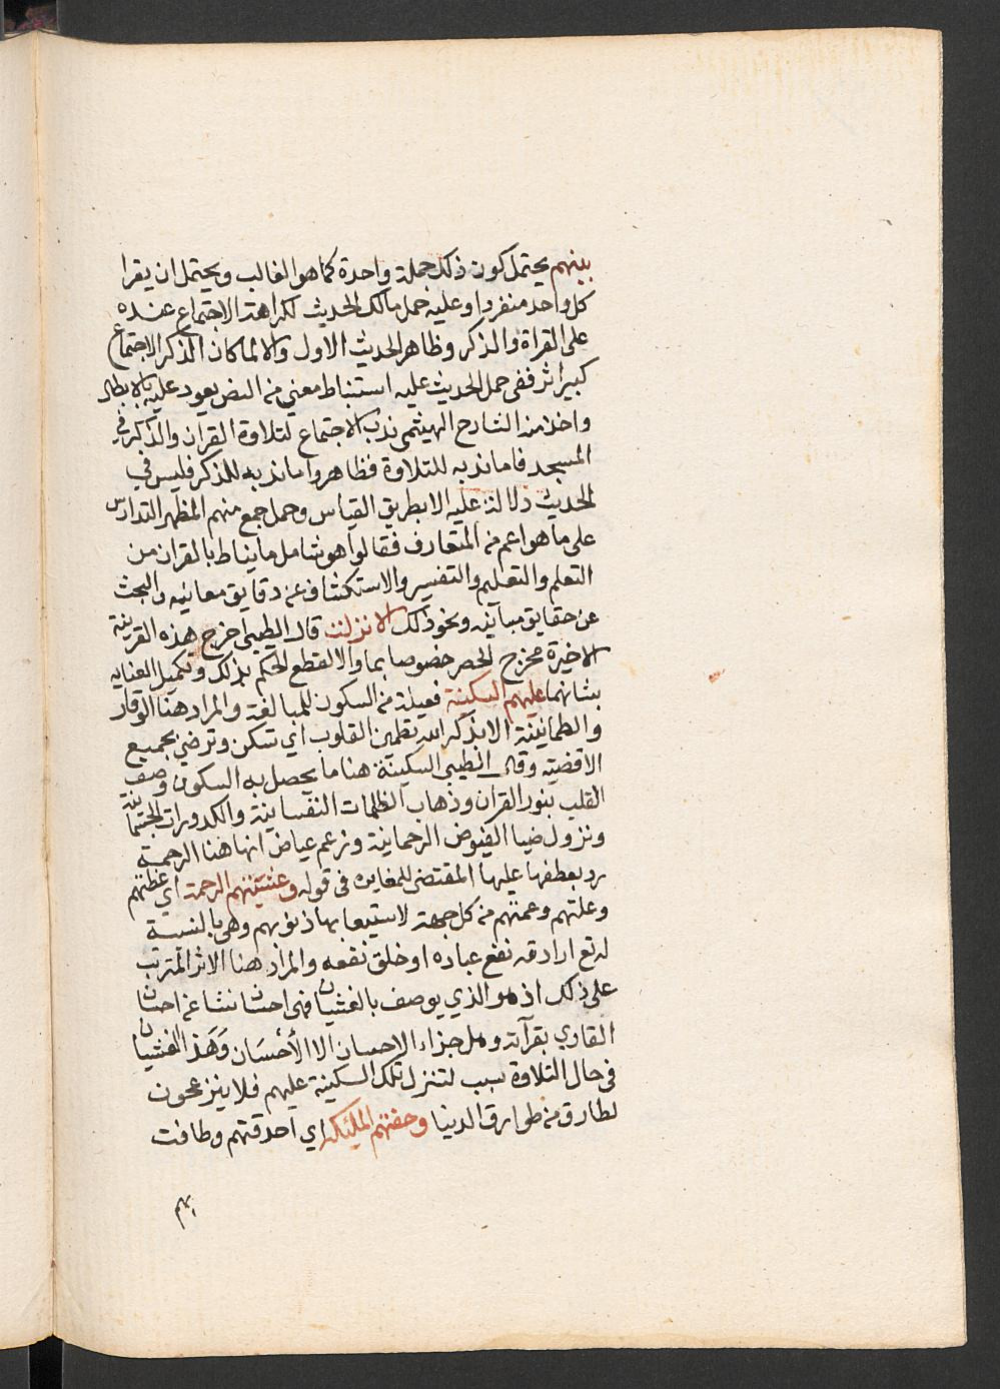 بينهم يحتمل كون ذلك جملة واحدة كما هو الغالب ويحتمل ان يقرا
كل واحد منفردا وعليه حمل مالك الحديث لكراهة الاجتماع عنده
على القراة والذكر وظاهر الحديث الاول والا لما كان لذكر الاجتماع
كبير اثر ففي حمل الحديث عليه استنباط معني من النص يعود عليه بالابطال
واخذ منه الشارح الهيثمي ندب الاجتماع لتلاوة القران والذكر في
المسجد فاما ندبه للتلاوة فظاهر واما ندبه للذكر فليس في
الحديث دلالة عليه الا بطريق القياس وحمل جمع منهم المظهر التدارس
على ما هو اعم من المتعارف فقالوا هو شامل ما يناط بالقران من
التعلم والتعليم والتفسير والاستكشاف عن دقايق معانيه والبحث
عن حقايق مبانيه ونحو ذلك الا نزلت قال الطيبي اخرج هذه القرينة
الاخيرة مخرج الحصر خصوصا بما والا لقطع الحكم بذلك وتكميل العنايه
بشانهما عليهم السكينة فعيلة من السكون للمبالغة والمراد هنا الوقار
والطمانينة الا بذكر الله تطمين القلوب اي تسكن وترضي بجميع
الاقضيه وقال الطيبي السكينة هنا ما يحصل به السكون وصف
القلب بنور القران وذهاب الظلمات النفسانية والكدورات الجسمانية
ونزول ضيا الفيوض الرحمانية وزعم عياض انها هنا الرحمة
رد بعطفها عليها المقتضي للمغايره في قوله وغشيتهم الرحمة اي غطتهم
وعلتهم وعمتهم من كل جهة لاستيعابها ذنوبهم وهي بالنسبة
له تع ارادته نفع عباده او خلق نفعه والمراد هنا الاثر المترتب
على ذلك اذ هو الذي يوصف بالغشيان فهي احسان نشا عن احسان
القاري بقرآته وهل جزاء الاحسان الا الأحْسَان وَهَذ الغشيان
في حال التلاوة سبب لتنزل تلك السكينة عليهم فلا ينزعجون
لطارق من طوارق الدينا وحفتهم المليكه اي احدقتهم وطافت
بهم